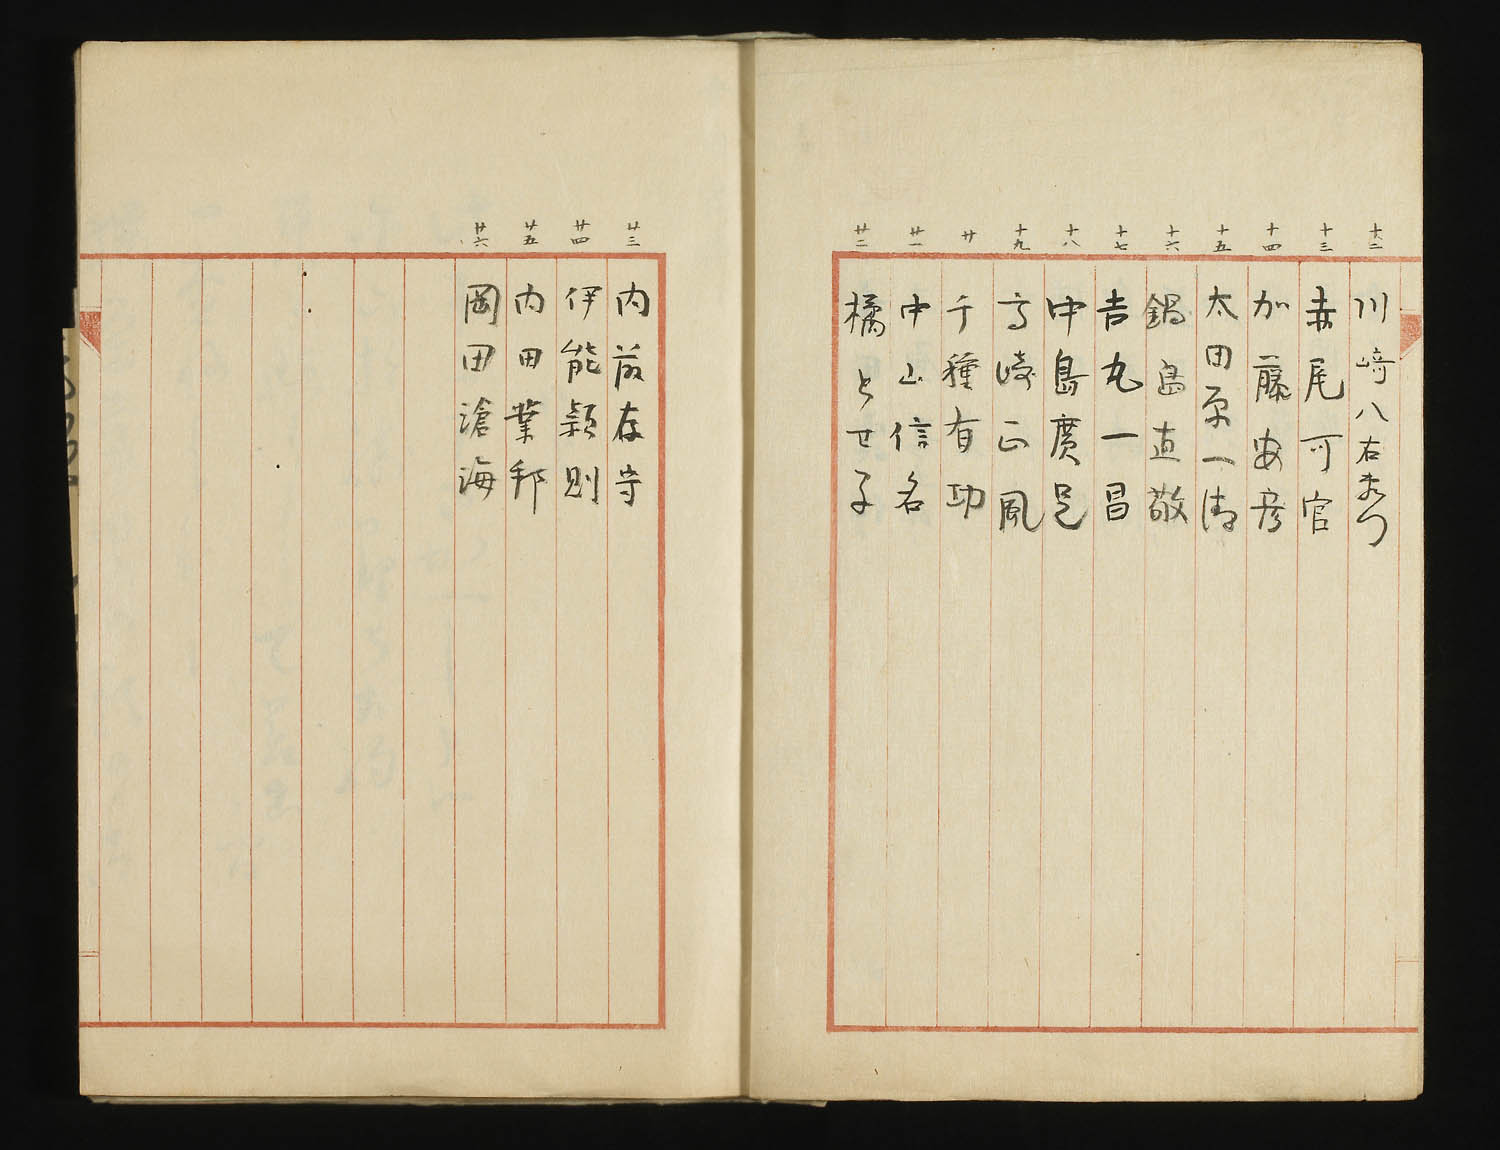 十二 川崎八右衛門
十三 赤尾可官
十四 加藤安彦
十五 太田原一清
十六 鍋島直敬
十七 吉丸一昌
十八 中島廣足
十九 高崎正風
廿 千種有功
廿一 中山信名
廿二 橘とせ子
廿三 内藤存守
廿四 伊能穎則
廿五 内田業邦
廿六 岡田滄海